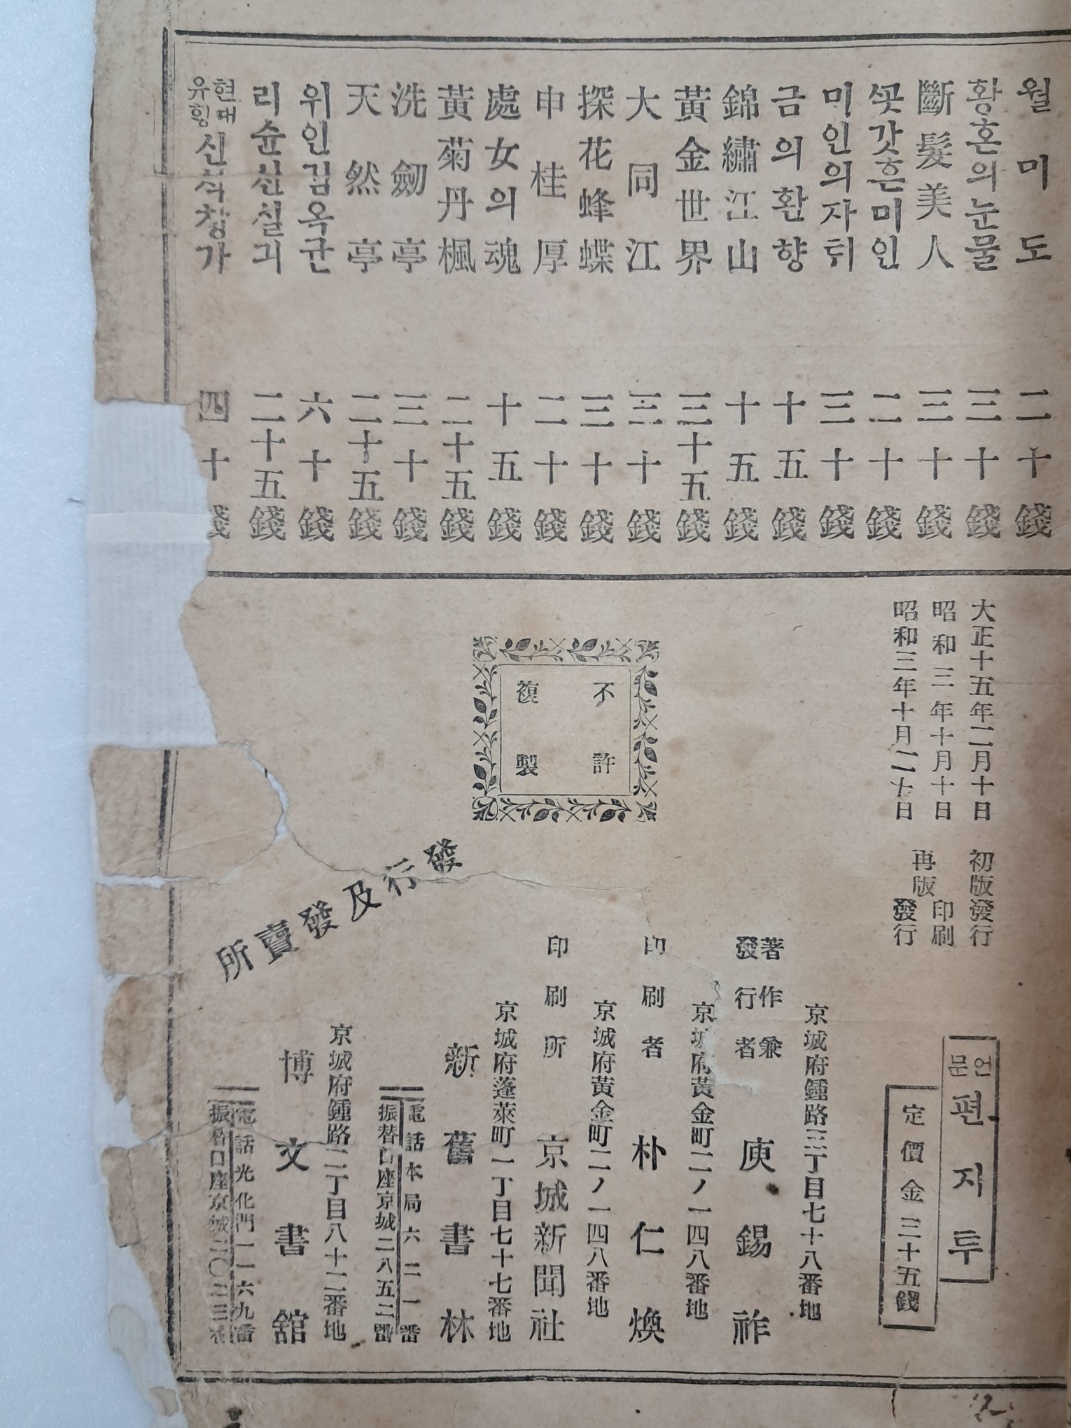 월미도 二十錢
황혼의눈물 三十錢
斷髮美人 三十錢
쏫갓흔미인 二十錢
미인의자취 三十錢
금의환향 十五錢
錦繡江山 十五錢
黃金世界 三十五錢
大同江 三十錢
探花蜂蝶 三十錢
申桂厚 二十錢
處女의魂 十五錢
黃菊丹楓 二十五錢
洗劒亭 三十錢
天然亭 二十五錢
위인김옥균 六十錢
리순신실긔 二十五錢
현대유힝신식창가 四十錢
大正十五年二月十日 初版發行
昭和三年十月十日 再版印刷
昭和三年十月二十日 再版發行
不許複製
諺文편지투
定價金三十五錢
京城府鍾路三丁目七十八番地
著作兼發行者 庾錫祚
京城府黃金町二ノ一四八番地
印刷者 朴仁煥
京城府黃金町二ノ一四八番地
印刷所 京城新聞社
發行及發賣所
京城府蓬萊町一丁目七十七番地
新舊書林
電話本局六二一番
振替口座京城二八五二番
京城府鍾路二丁目八十二番地
博文書舘
電話光化門一一六九番
振替口座京城二〇二三番